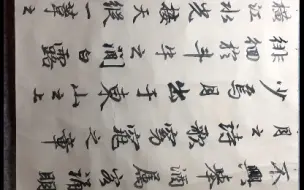 不興舉酒屬客誦明
月之詩歌窈窕之章
少焉月出于東山之上
徘徊於斗牛之間白露
橫江水光接天縱一葦之